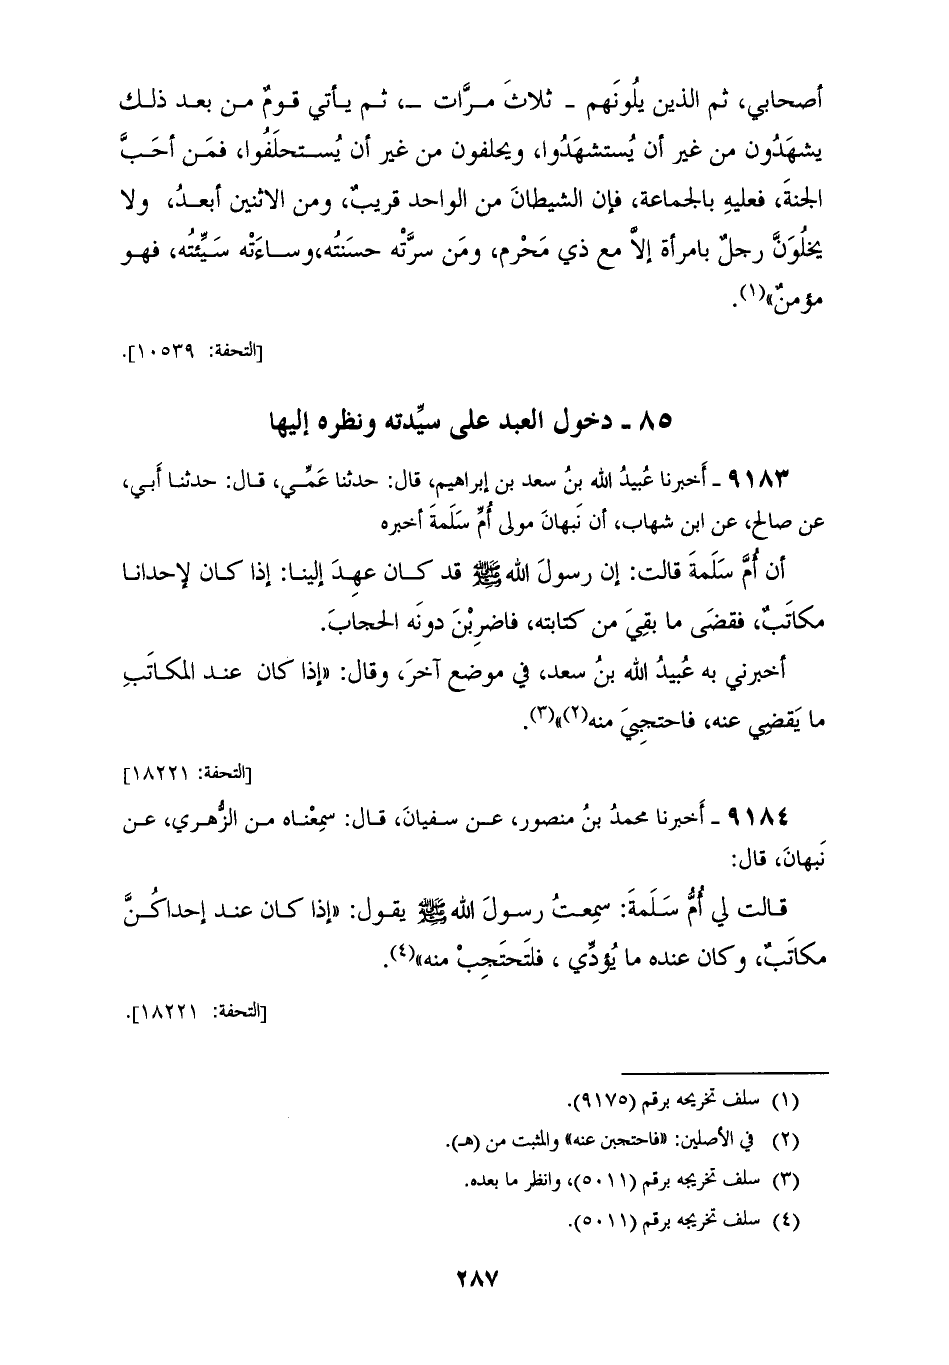 أصحابي، ثم الذين يلُونَهم - ثلاثَ مرَّات -، ثم يأتي قومٌ من بعد ذلك
يشهَدُون من غير أن يُستشهَدُوا، ويحلفون من غير أن يُستحلَفُوا، فمَن أحَبَّ
الجنةَ، فعليهِ بالجماعة، فإن الشيطانَ من الواحد قريبٌ، ومن الاثنين أبعدُ، ولا
يخلُوَنَّ رجلٌ بامرأة إلاَّ مع ذي مَحْرم، ومَن سرَّتْه حسَنتُه،وساءَتْه سَيِّئتُه، فهو
مؤمنٌ»(١).
[التحفة: ١٠٥٣٩].
٨٥ - دخول العبد على سيِّدته ونظره إليها
٩١٨٣ - أَخبرنا عُبيدُ الله بنُ سعد بن إبراهيم، قال: حدثنا عَمِّي، قال: حدثنا أَبي،
عن صالح، عن ابن شهاب، أن نَبهانَ مولى أُمِّ سَلَمةَ أخبره
أن أُمَّ سَلَمةَ قالت: إن رسولَ الله ﷺ قد كان عهِدَ إلينا: إذا كان لإحدانا
مكاتَبٌ، فقضَى ما بقِيَ من كتابته، فاضرِبْنَ دونَه الحجابَ.
أخبرني به عُبيدُ الله بنُ سعد، في موضع آخرَ، وقال: «إذا كان عند المكاتَبِ
ما يَقضِي عنه، فاحتجِبيَ منه(٢)»(٣).
[التحفة: ١٨٢٢١]
٩١٨٤ - أَخبرنا محمدُ بنُ منصور، عن سفيانَ، قال: سمِعْناه من الزُّهري، عن
نَبهانَ، قال:
قالت لي أُمُّ سَلَمةَ: سمِعتُ رسولَ الله ﷺ يقول: «إذا كان عند إحداكُنَّ
مكاتَبٌ، وكان عنده ما يُؤدِّي ، فلتَحتَجِبْ منه»(٤).
[التحفة: ١٨٢٢١].
(١) سلف تخريجه برقم (٩١٧٥).
(٢) في الأصلين: «فاحتجبن عنه» والمثبت من (هـ).
(٣) سلف تخريجه برقم (٥٠١١)، وانظر ما بعده.
(٤) سلف تخريجه برقم (٥٠١١).
٢٨٧